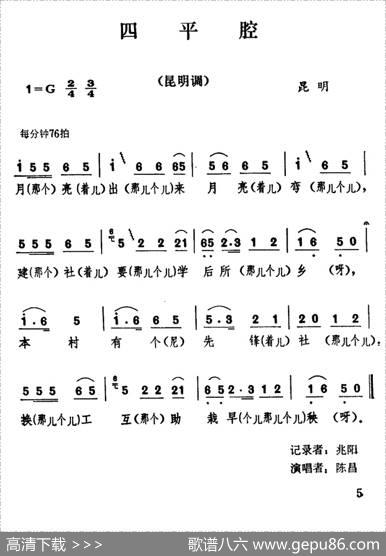 四平腔
(昆明调)
1=G 2/4 3/4
昆明
每分钟76拍
i 5 5 5 6 5 | i 6 6 65 | i 6 6 5 | i 6 5 |
月(那个)亮(着儿)出(那个儿)来 月亮(着)弯(那个儿),
5 5 5 6 5 | 5 2 2 21 | 65 2·3 1 2 | 1 6 5 0 |
建(那个)社(着儿)要(那个儿)学 后所(那个儿)乡(呀),
i·6 5 | i·6 6 5 | 5·3 2 1 | 2 0 1 2 |
本村有个(尼)先锋(着儿)社(那个儿),
5 5 5 6 5 | 5 2 2 1 | 6 5 2·3 2 1 2 | 1 6 5 0 |
换(那个儿)工互(那个)助栽早(个儿那个儿)秧(呀)。
记录者:兆阳
演唱者:陈昌
5
高清下载 >>>
歌谱八六 www.gepu86.com